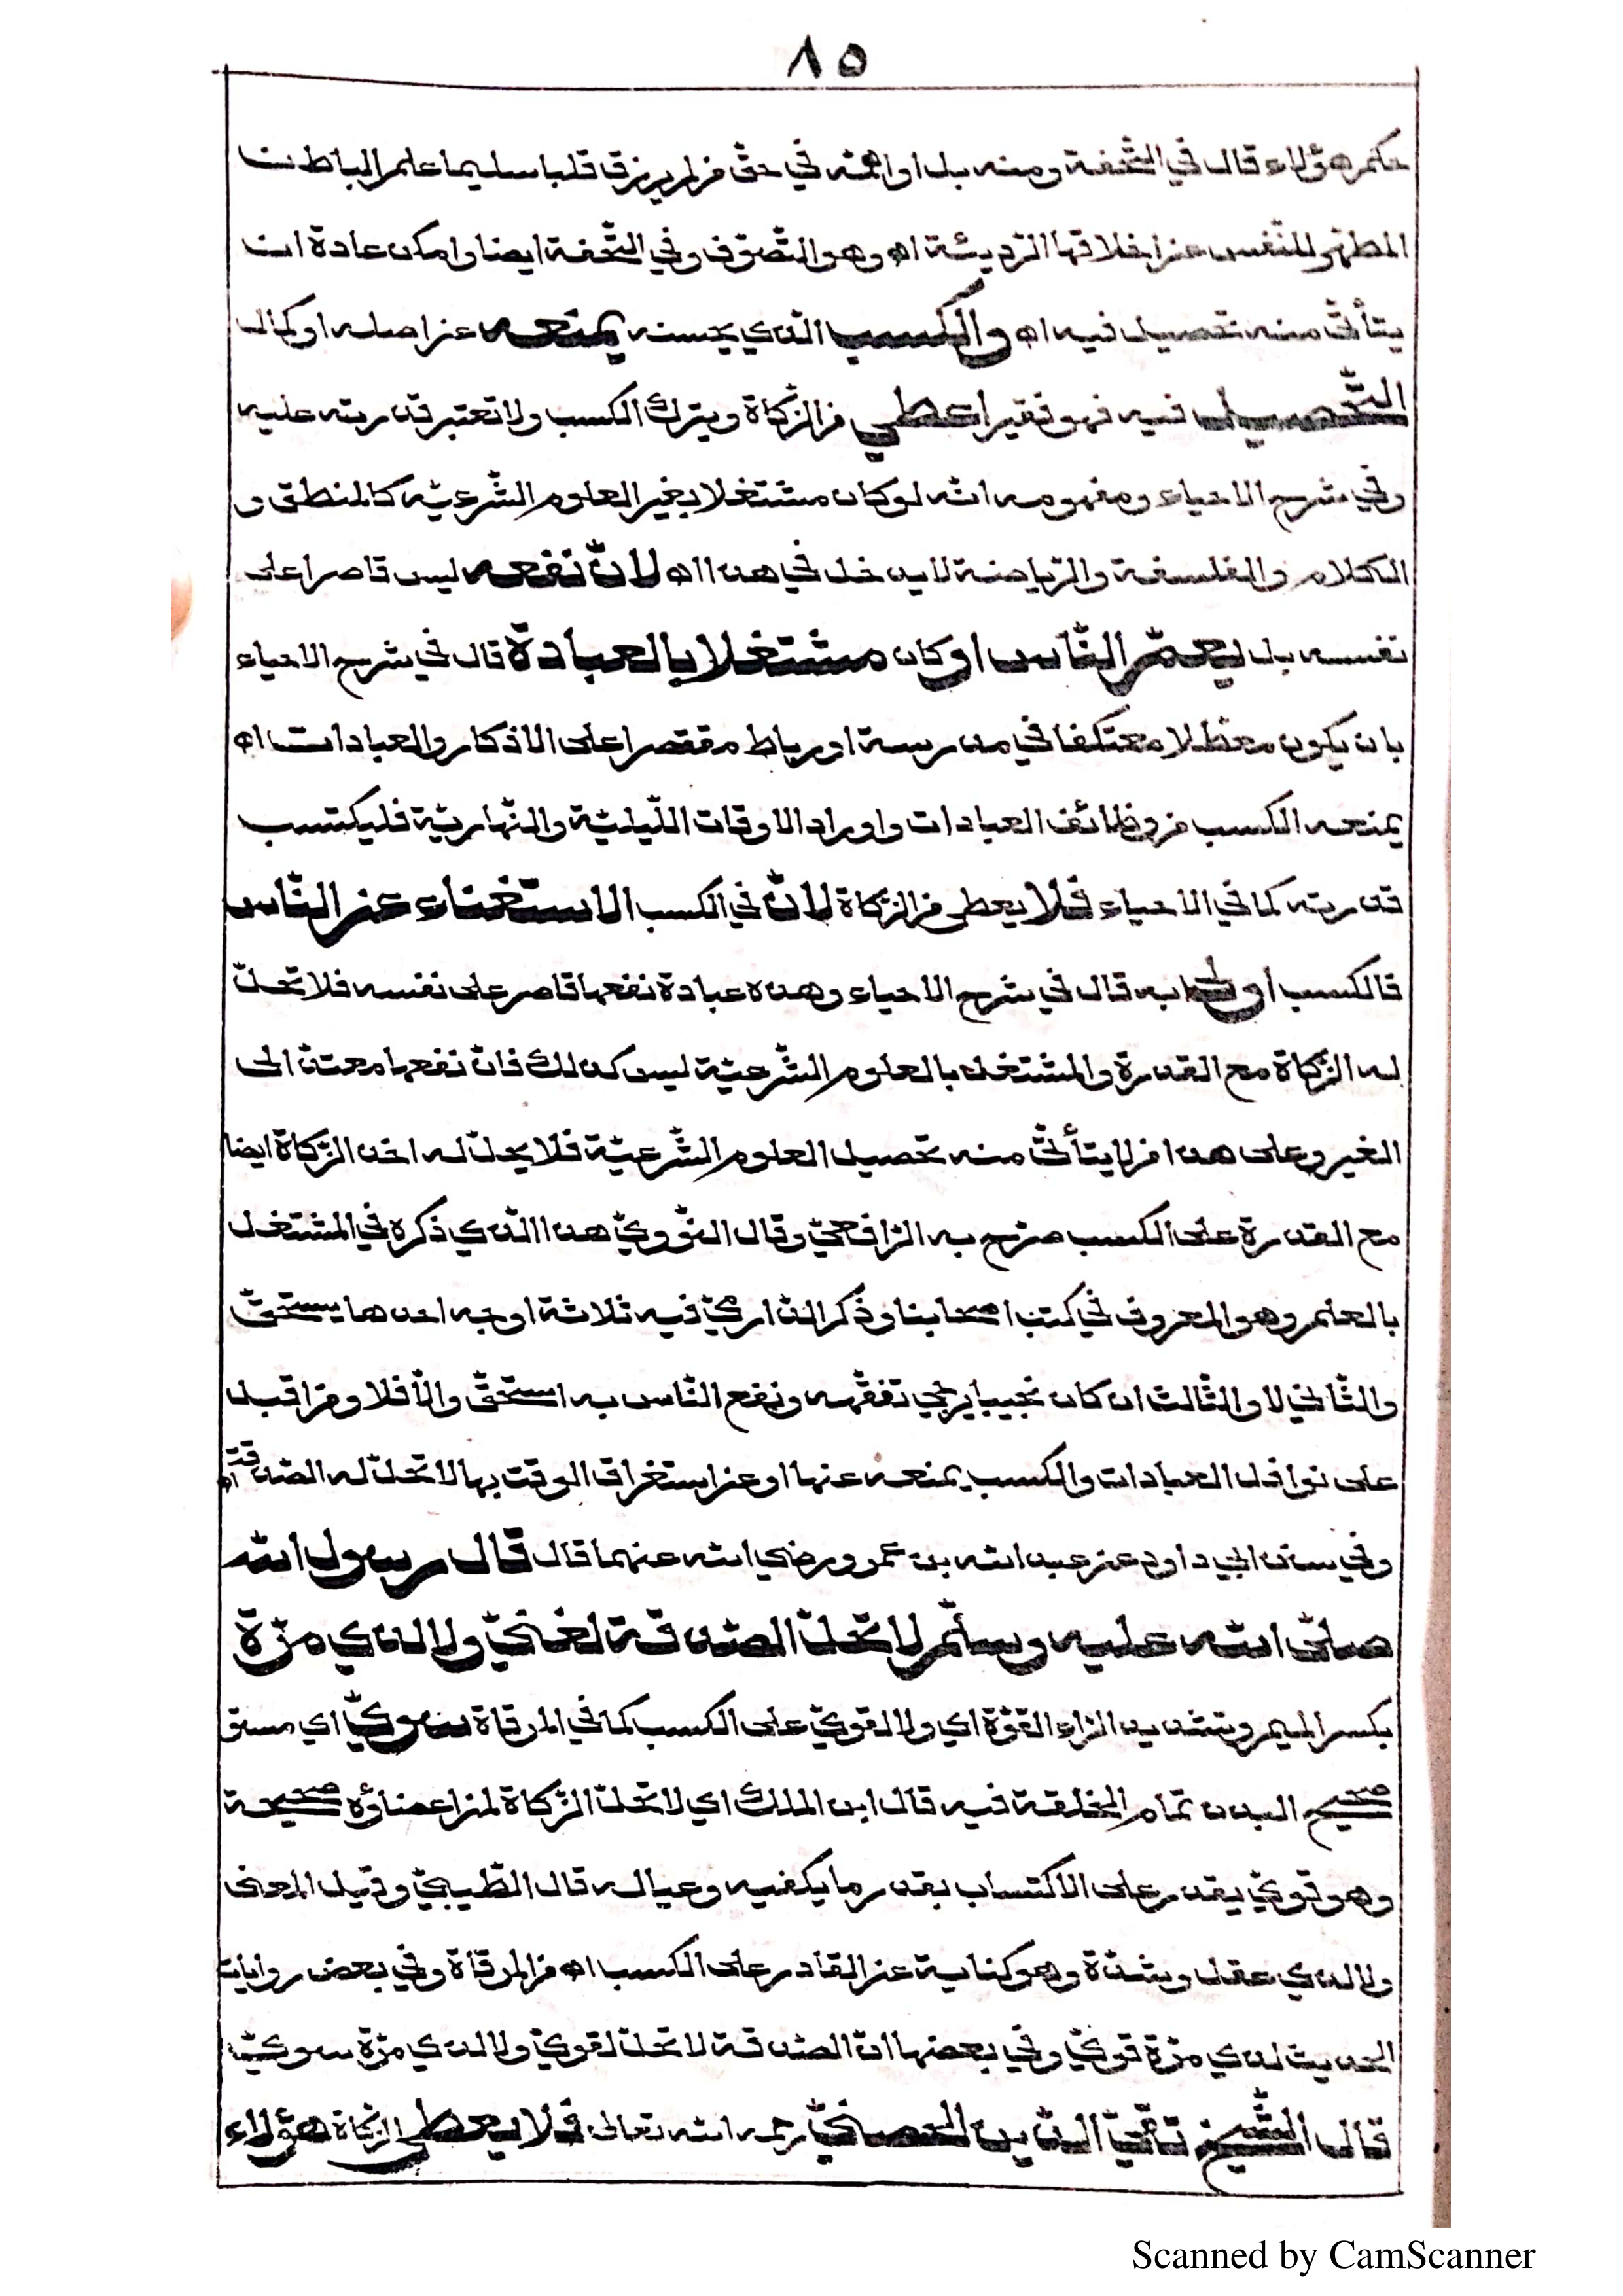 ٨٥
حكم هؤلاء قال في التّحفة ومنه بل اولى اهمّه في حقّ من لم يرزق قلبا سليما علم الباطن
المطهّر للنّفس عن اخلاقها الرّديئة اه وهو التّصوّف وفي التّحفة ايضا وامكن عادة ان
يتأتّى منه تحصيل فيه اه والكسب الّذي يحسنه يمنعه عن اصله او كمال
التّحصيل فيه فهو فقير اعطي من الزّكاة ويترك الكسب ولا تعتبر قدرته عليه
وفي شرح الاحياء ومفهومه انّه لو كان مشتغلا بغير العلوم الشّرعيّه كالمنطق و
الكلام والفلسفة والرّياضة لا يدخل في هذا اه لانّ نفعه ليس قاصرا على
نفسه بل ليعمّ النّاس او كان مشتغلا بالعبادة قال في شرح الاحياء
بان يكون معطّلا معتكفا في مدرسة او رباط مقتصرا على الاذكار والعبادات اه
يمنعه الكسب من وظائف العبادات واوراد الاوقات اللّيليّة والنّهاريّة فليكتسب
قدرته كما في الاحياء فلا يعطى من الزّكاة لانّ في الكسب الاستغناء عن النّاس
فالكسب اولى به قال في شرح الاحياء وهذه عبادة نفعها قاصر على نفسه فلا تحلّ
له الزّكاة مع القدرة والمشتغل بالعلوم الشّرعيّة ليس كذلك فانّ نفعها معتدّ الى
الغير وعلى هذا من لا يتأتّى منه تحصيل العلوم الشّرعيّة فلا يحلّ له اخذ الزّكاة ايضا
مع القدرة على الكسب صرّح به الرّافعيّ وقال النّوويّ هذا الّذي ذكره في المشتغل
بالعلم وهو المعروف في كتب اصحابنا وذكر الدّارميّ فيه ثلاثة اوجه احدها يستحقّ
والثّاني لا والثّالث ان كان نجيبا يرجي تفقّهه ونفع النّاس به استحقّ والّا فلا ومن اقبل
على نوافل العبادات والكسب يمنعه عنها او عن استغراق الوقت بها لا تحلّ له الصّدقة اه
وفي سنن ابي داود عن عبد الله بن عمرو رضي الله عنهما قال قال رسول الله
صلّى الله عليه وسلّم لا تحلّ الصّدقة لغنيّ ولا لذي مرّة
بكسر الميم وتشديد الرّاء القوّة اي ولا لقويّ على الكسب كما في المرقاة سويّ اي مستو
صحيح البدن تمام الخلقة فيه قال ابن الملك اي لا تحلّ الزّكاة لمن اعضاؤه صحيحة
وهو قويّ يقدر على الاكتساب بقدر ما يكفيه وعياله قال الطّيبيّ وقيل المعنى
ولا لذي عقل وشدّة وهو كناية عن القادر على الكسب اه من المرقاة وفي بعض روايات
الحديث لذي مرّة قويّ وفي بعضها انّ الصّدقة لا تحلّ لقويّ ولا لذي مرّة سويّ
قال الشّيخ تقيّ الدّين الحصنيّ رحمه الله تعالى فلا يعطى الزّكاة هؤلاء
Scanned by CamScanner